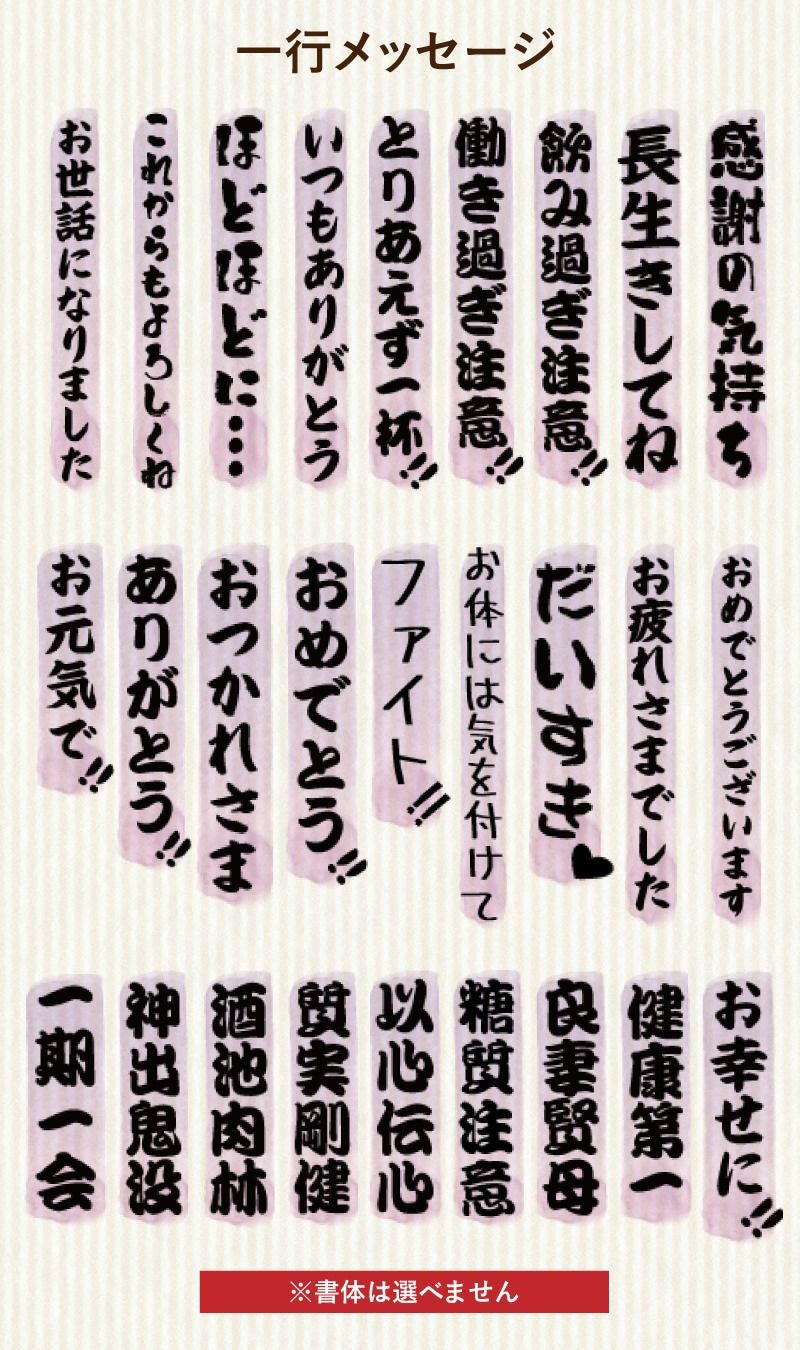 一行メッセージ
感謝の気持ち
長生きしてね
飲み過ぎ注意!!
働き過ぎ注意!!
とりあえず一杯!!
いつもありがとう
ほどほどに…
これからもよろしくね
お世話になりました
おめでとうございます
お疲れさまでした
だいすき♥
お体には気を付けて
ファイト!!
おめでとう!!
おつかれさま
ありがとう!!
お元気で!!
お幸せに!!
健康第一
良妻賢母
糖質注意
以心伝心
質実剛健
酒池肉林
神出鬼没
一期一会
※書体は選べません